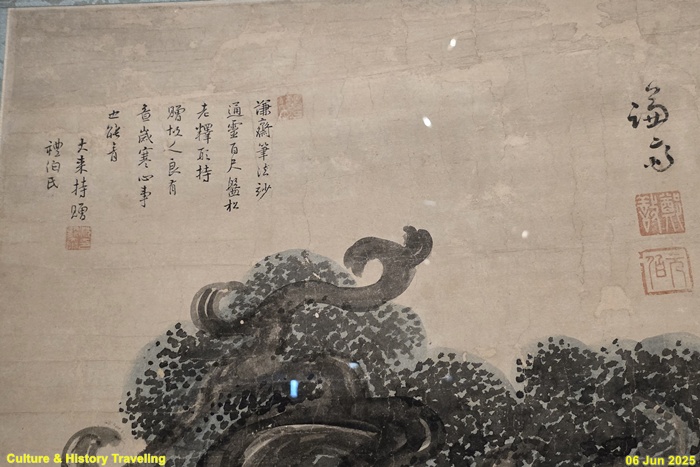 謙齋
鄭敾
元伯
謙齋筆法玅
通靈百尺盤松
老釋形持
贈故人良有
意歲寒心事
也能青
大來持贈
禮泊民
Culture & History Traveling
06 Jun 2025